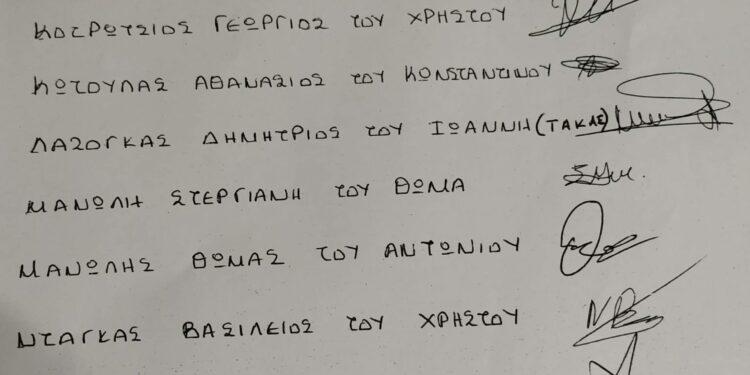 ΚΟΤΡΩΤΣΙΟΣ ΓΕΩΡΓΙΟΣ ΤΟΥ ΧΡΗΣΤΟΥ
ΚΩΤΟΥΛΑΣ ΑΘΑΝΑΣΙΟΣ ΤΟΥ ΚΩΝΣΤΑΝΤΙΝΟΥ
ΛΑΖΟΓΚΑΣ ΔΗΜΗΤΡΙΟΣ ΤΟΥ ΙΩΑΝΝΗ (ΤΑΚΑΣ)
ΜΑΝΩΛΗ ΣΤΕΡΓΙΑΝΗ ΤΟΥ ΘΩΜΑ
ΜΑΝΩΛΗΣ ΘΩΜΑΣ ΤΟΥ ΑΝΤΩΝΙΟΥ
ΝΤΑΓΚΑΣ ΒΑΣΙΛΕΙΟΣ ΤΟΥ ΧΡΗΣΤΟΥ